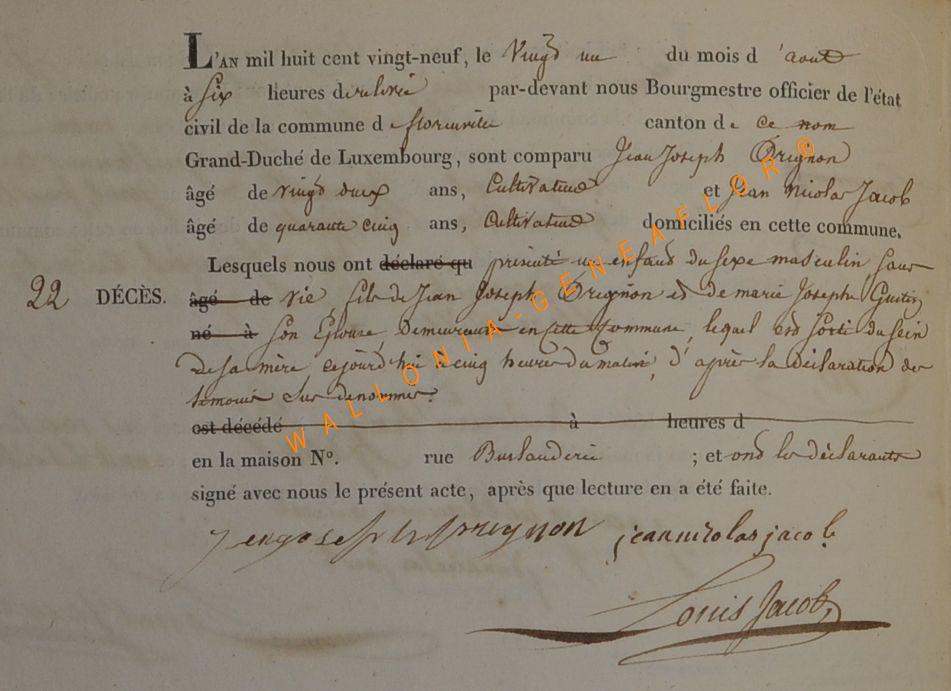 L'AN mil huit cent vingt-neuf, le Vingt un du mois d'aout
à Six heures de relevée par-devant nous Bourgmestre officier de l'état
civil de la commune de florenville canton de ce nom
Grand-Duché de Luxembourg, sont comparu Jean Joseph Orignon
âgé de vingt deux ans, Cultivateur et Jean Nicolas Jacob
âgé de quarante cinq ans, Cultivateur domiciliés en cette commune.
Lesquels nous ont déclaré qu presenté un enfant du sexe masculin, sans
22 DÉCÈS. âgé de vie fils de Jean Joseph Orignon et de marie Josephe
né à son Epouse, Demeurent en cette Commune, lequel est sorti du sein
De sa mère cejourd'hui à cinq heures du matin, d'après la déclaration des
temoins sus denommés.
est décédé à heures d
en la maison N°. rue ; et ont les déclarants
signé avec nous le présent acte, après que lecture en a été faite.
jeannicolas jacob
Louis Jacob
WALLONIA-GENEAFLOR®